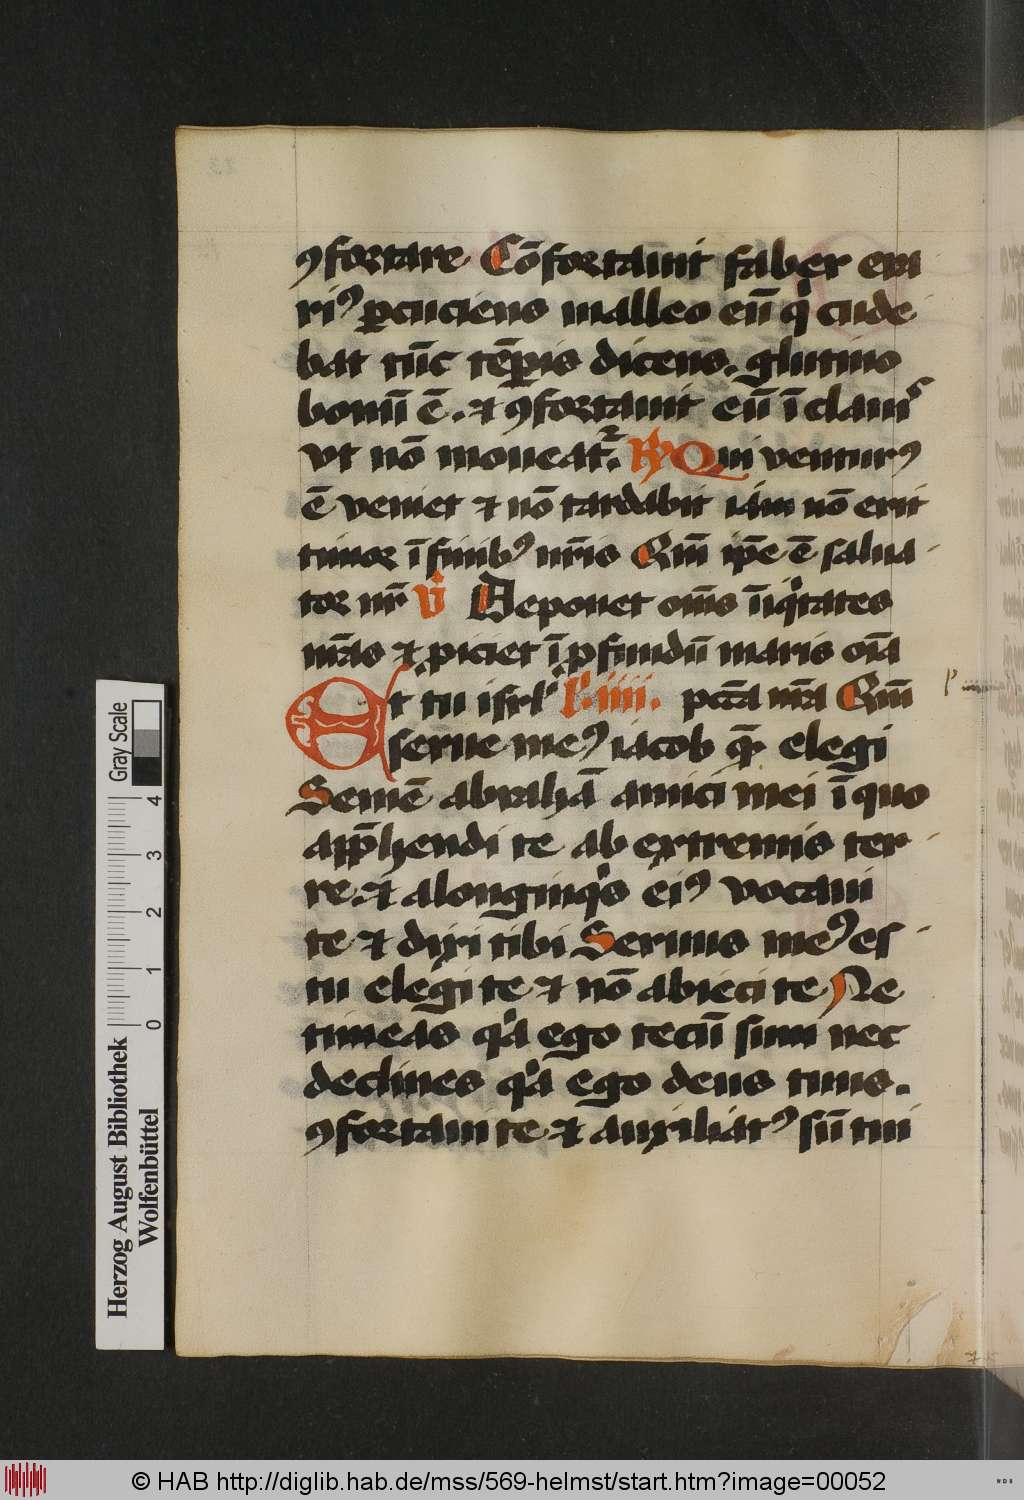 ꝯfortare Cōfortauit faber era
riꝰ ꝑcuciens malleo eū qͥ cude
bat tūc tēꝑis dicens. glutino
bonū ē. ⁊ ꝯfortauit eū ī clauis
vt nō moueatᷣ. ℟ Qui venturꝰ
ē veniet ⁊ nō tardabit iam nō erit
timor ī finibꝰ nr̄is Qm̄ ip̄e ē salua
tor nr̄ V̇ Deponet om̄s īiqͥtates
nr̄as ⁊ ꝓiciet ī ꝓfundū maris oīa
Et tu isrl̓ l̓. iiii. pctā nr̄a Qm̄
serue meꝰ iacob quē elegi
Semē abrahā amici mei ī quo
app̄hendi te ab extremis ter
re. ⁊ a longinqͥs eiꝰ vocaui
te ⁊ dixi tibi Seruus meꝰ es
tu elegi te ⁊ nō abieci te Ne
timeas qͥa ego tecū sum nec
declines qͥa ego deus tuus.
ꝯfortaui te ⁊ auxiliatꝰ sū tui
Gray Scale
4 3 2 1 0
Herzog August Bibliothek
Wolfenbüttel
© HAB http://diglib.hab.de/mss/569-helmst/start.htm?image=00052